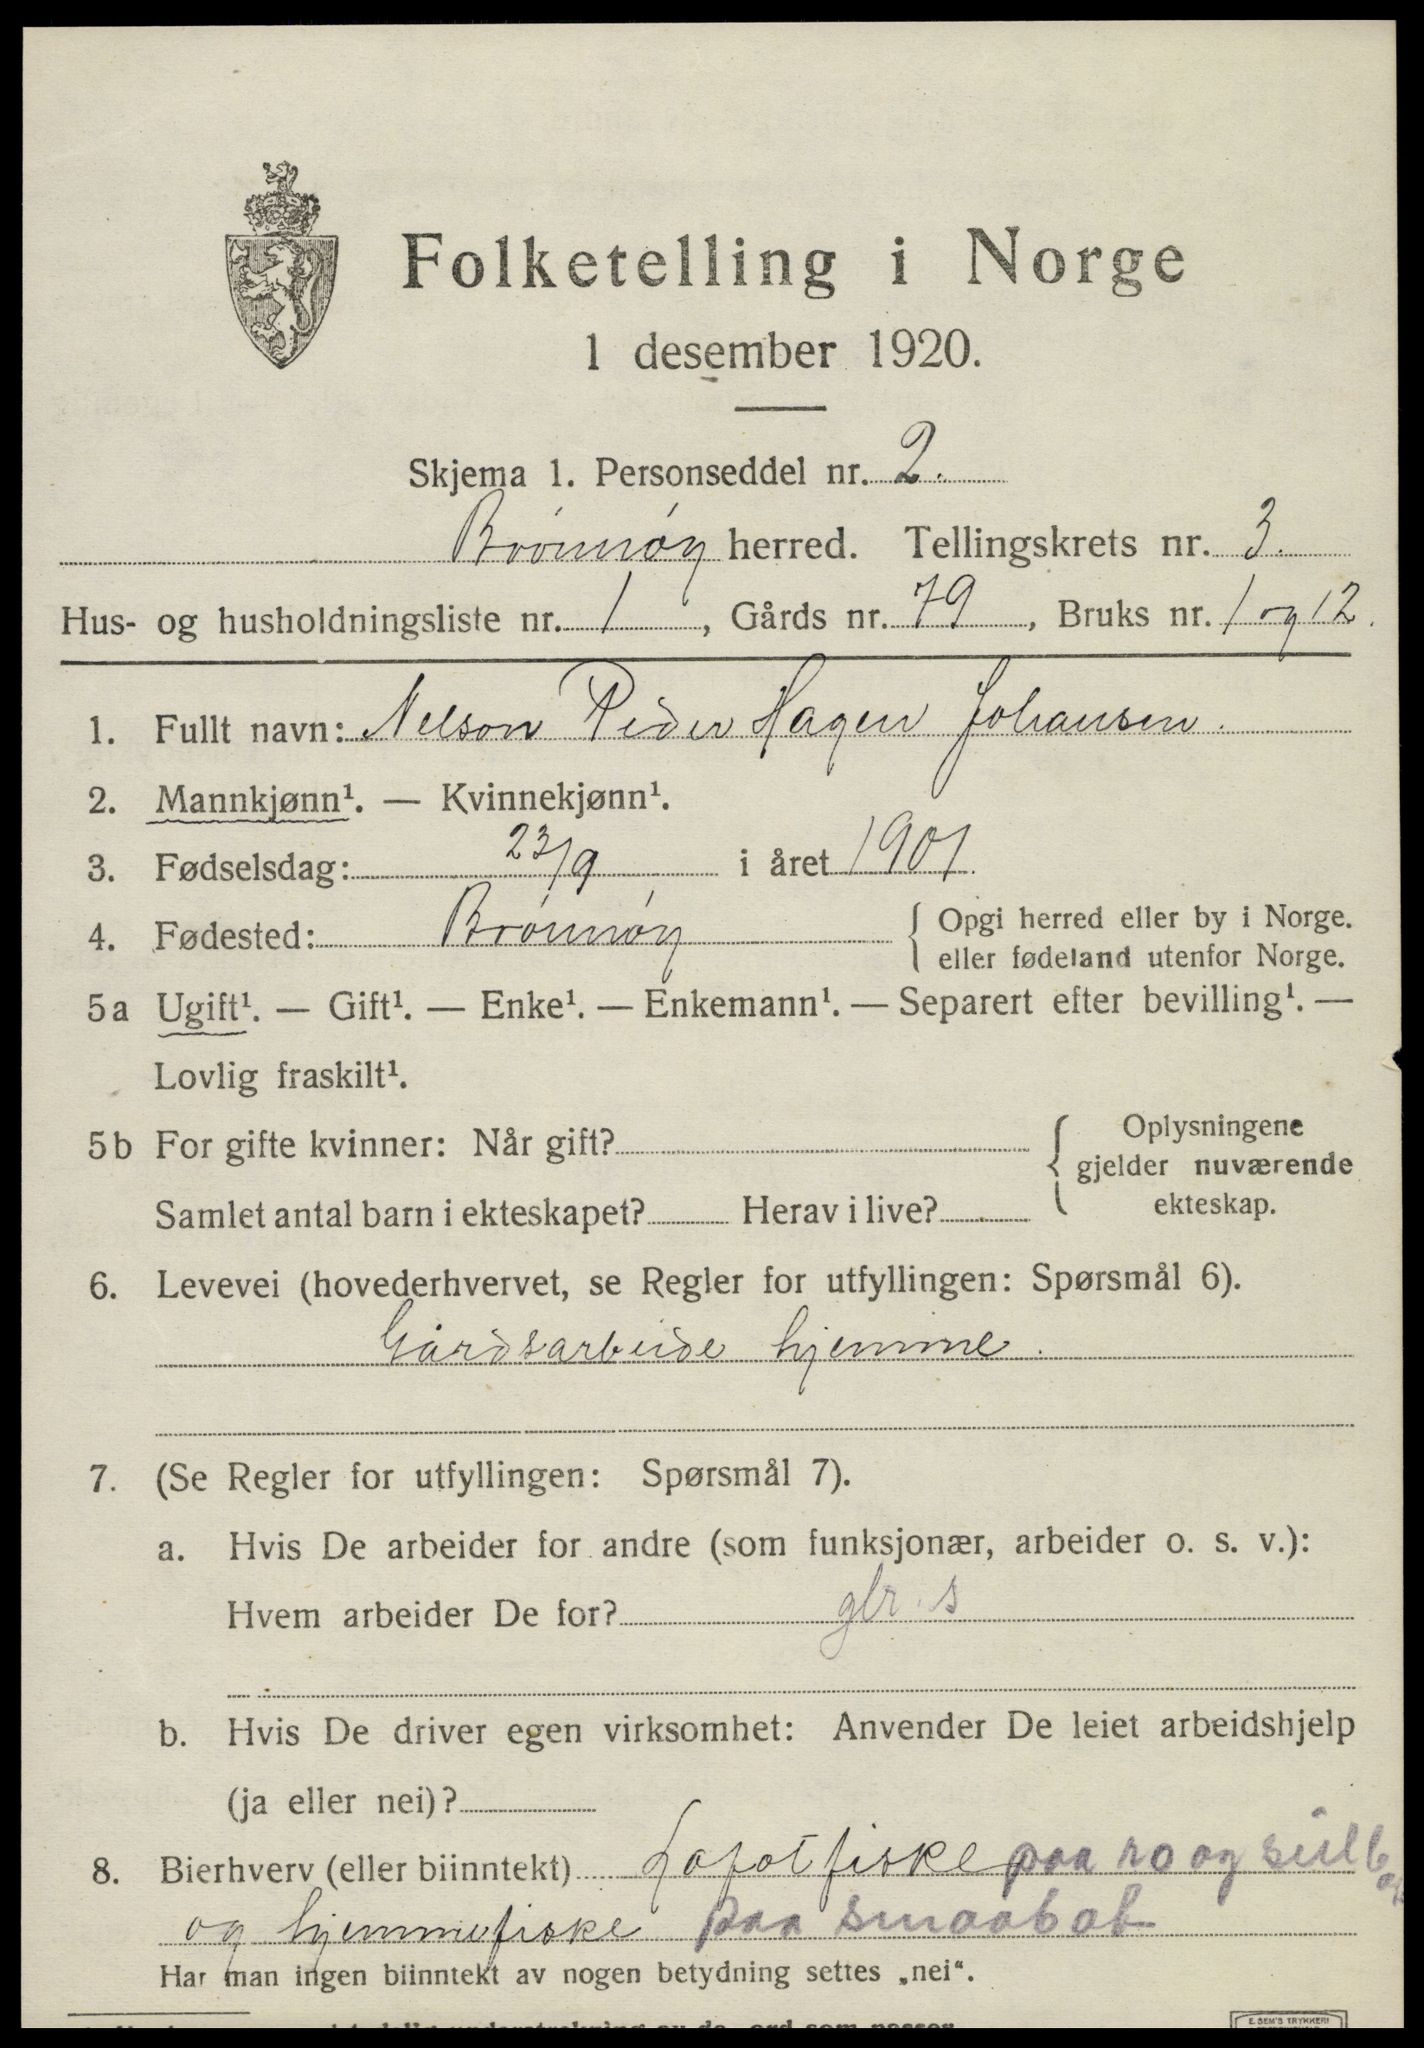 Folketelling i Norge
1 desember 1920.
Skjema 1. Personseddel nr. 2.
Brönnöy herred. Tellingskrets nr. 3.
Hus- og husholdningsliste nr. 1, Gårds nr. 79, Bruks nr. 1 og 12.
1. Fullt navn: Nelson Peder Hagen Johansen.
2. Mannkjønn¹. — Kvinnekjønn¹.
3. Fødselsdag: 23/9 i året 1901.
4. Fødested: Brönnöy { Opgi herred eller by i Norge.
eller fødeland utenfor Norge.
5a Ugift¹. — Gift¹. — Enke¹. — Enkemann¹. — Separert efter bevilling¹. —
Lovlig fraskilt¹.
5b For gifte kvinner: Når gift? { Oplysningene
gjelder nuværende
ekteskap.
Samlet antal barn i ekteskapet? Herav i live?
6. Levevei (hovederhvervet, se Regler for utfyllingen: Spørsmål 6).
Gårdsarbeide hjemme.
7. (Se Regler for utfyllingen: Spørsmål 7).
a. Hvis De arbeider for andre (som funksjonær, arbeider o. s. v.):
Hvem arbeider De for? gbr. s
b. Hvis De driver egen virksomhet: Anvender De leiet arbeidshjelp
(ja eller nei)?
8. Bierhverv (eller biinntekt) Lofotfiske paa ro og seilbaat
og hjemmefiske paa smaabaat
Har man ingen biinntekt av nogen betydning settes „nei“.
E. SEM'S TRYKKERI